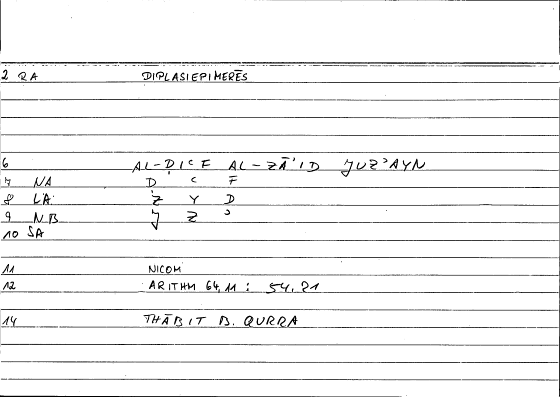 2 RA DIPLASIEPIMERĒS
6 AL-ḌIʿF AL-ZĀʾID JUZʾAYN
7 NA Ḍ ʿ F
8 LA Z Y D
9 NB J Z ʾ
10 SA
11 NICOM
12 ARITHM 64,11 : 54,21
14 THĀBIT B. QURRA